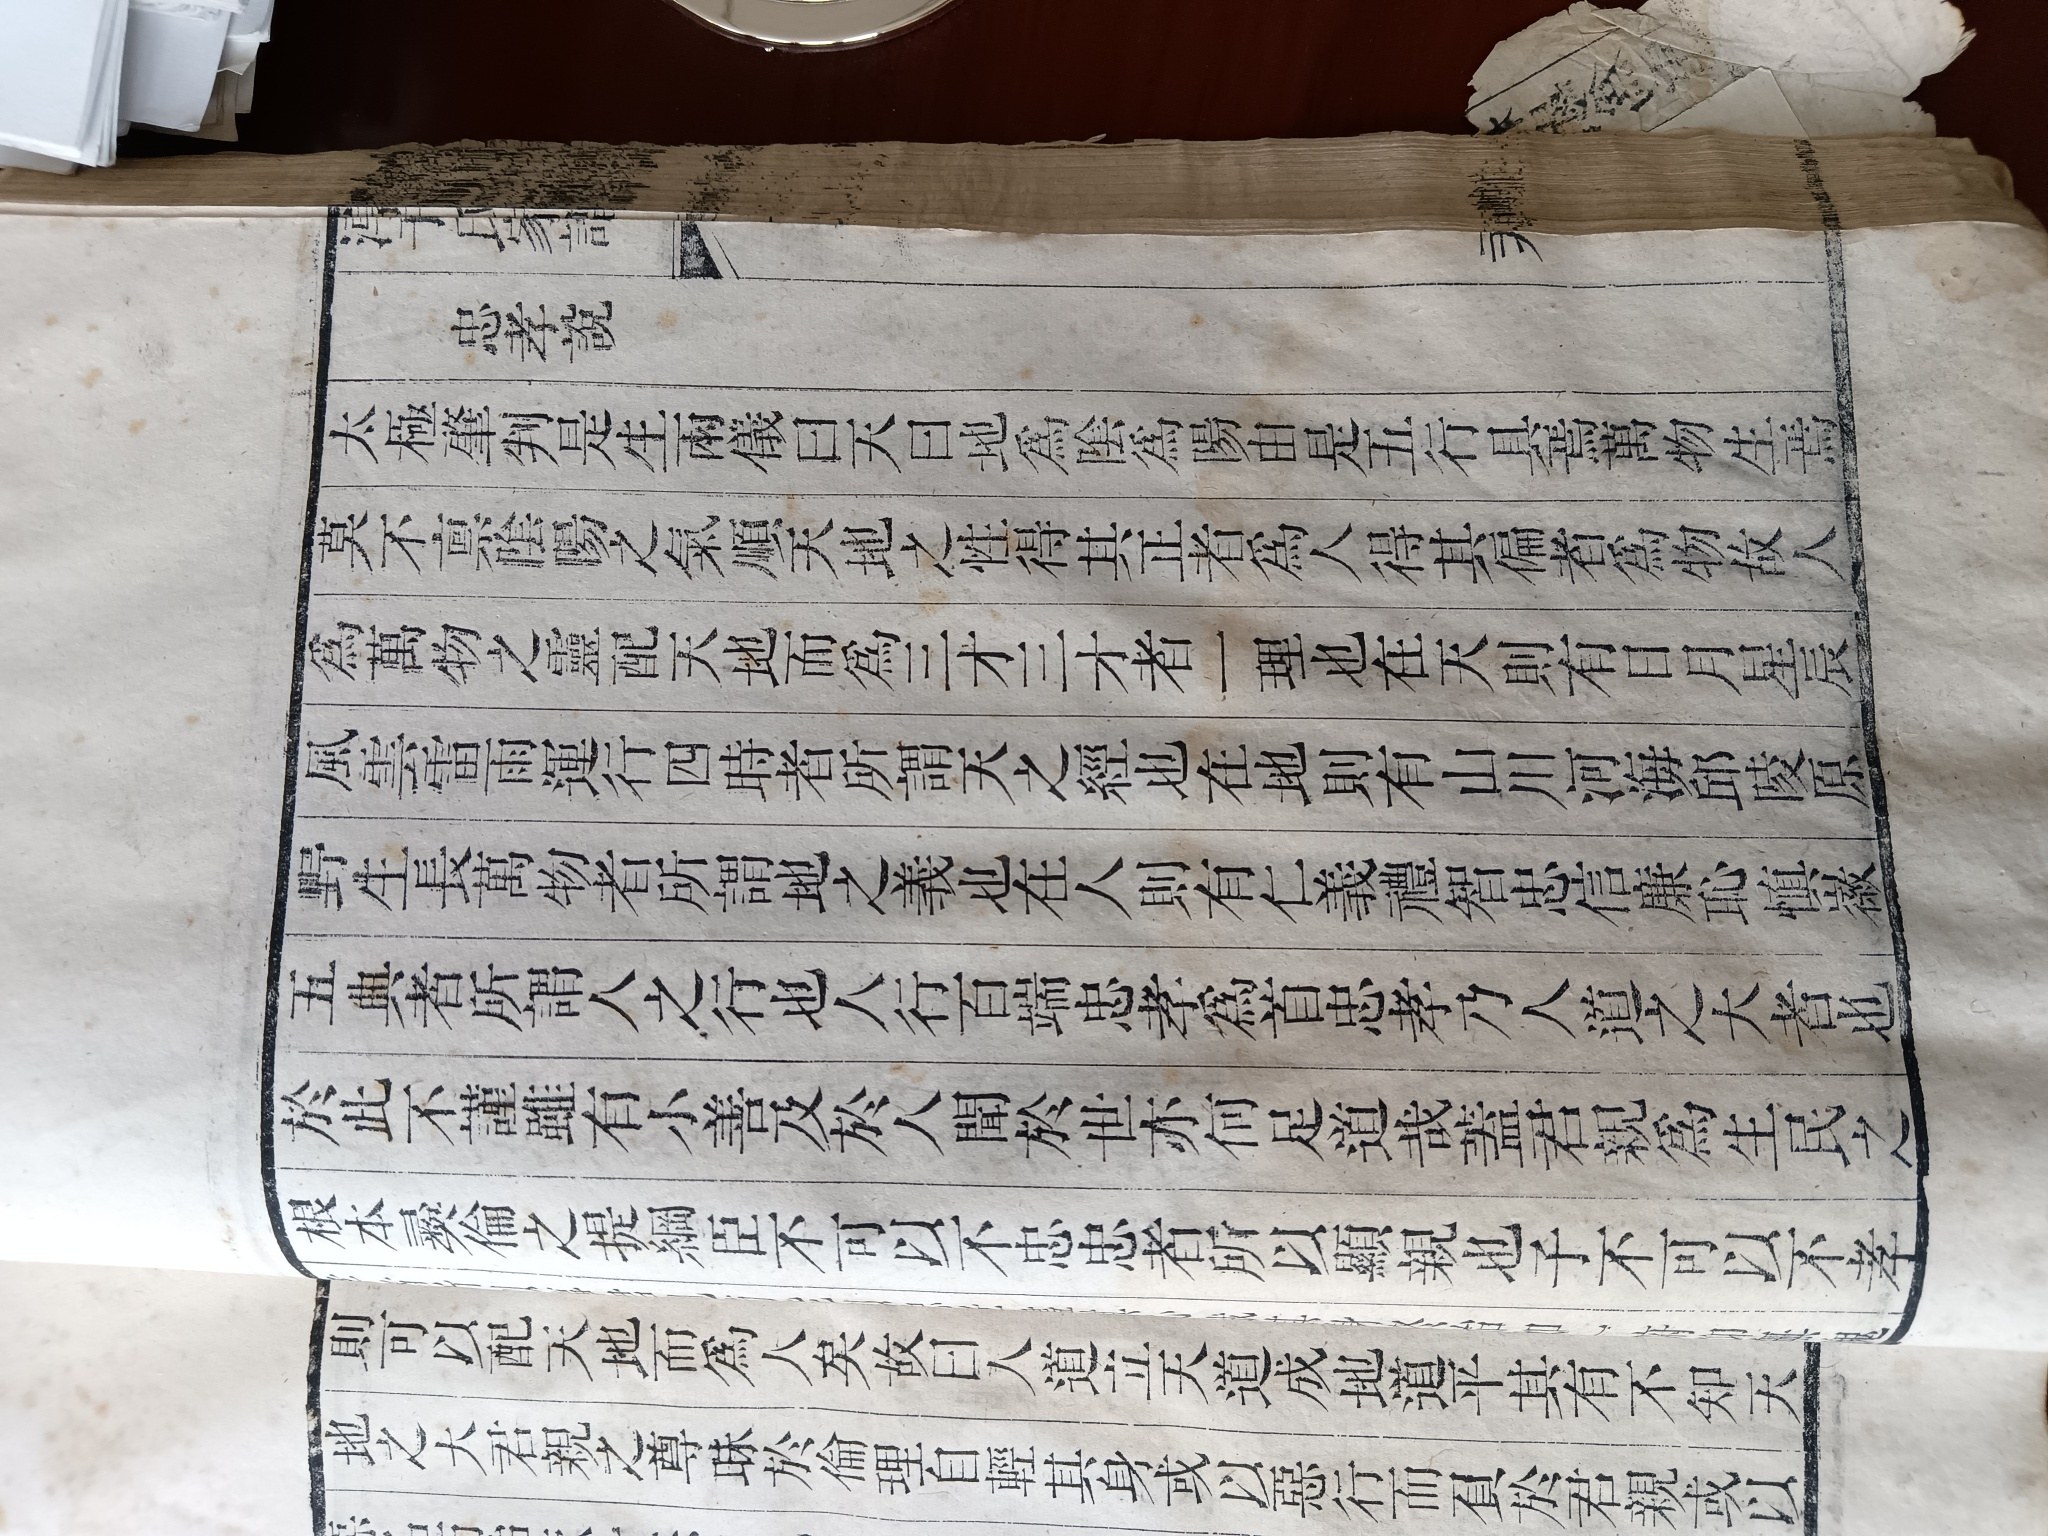 氏家譜
忠孝說
太極肇判是生兩儀曰天曰地爲陰爲陽由是五行具焉萬物生焉
莫不禀陰陽之氣順天地之性得其正者爲人得其偏者爲物故人
爲萬物之靈配天地而爲三才三才者一理也在天則有日月星辰
風雲雷雨運行四時者所謂天之經也在地則有山川河海邱陵原
野生長萬物者所謂地之義也在人則有仁義禮智忠信廉恥慎徽
五典者所謂人之行也人行百端忠孝爲首忠孝乃人道之大者也
於此不謹雖有小善及於人聞於世亦何足道哉蓋君親爲生民之
根本彞倫之提綱臣不可以不忠忠者所以顯親也子不可以不孝
則可以配天地而爲人矣故曰人道立天道成地道平其有不知天
地之大君親之尊昧於倫理自輕其身或以惡行而負於君親或以